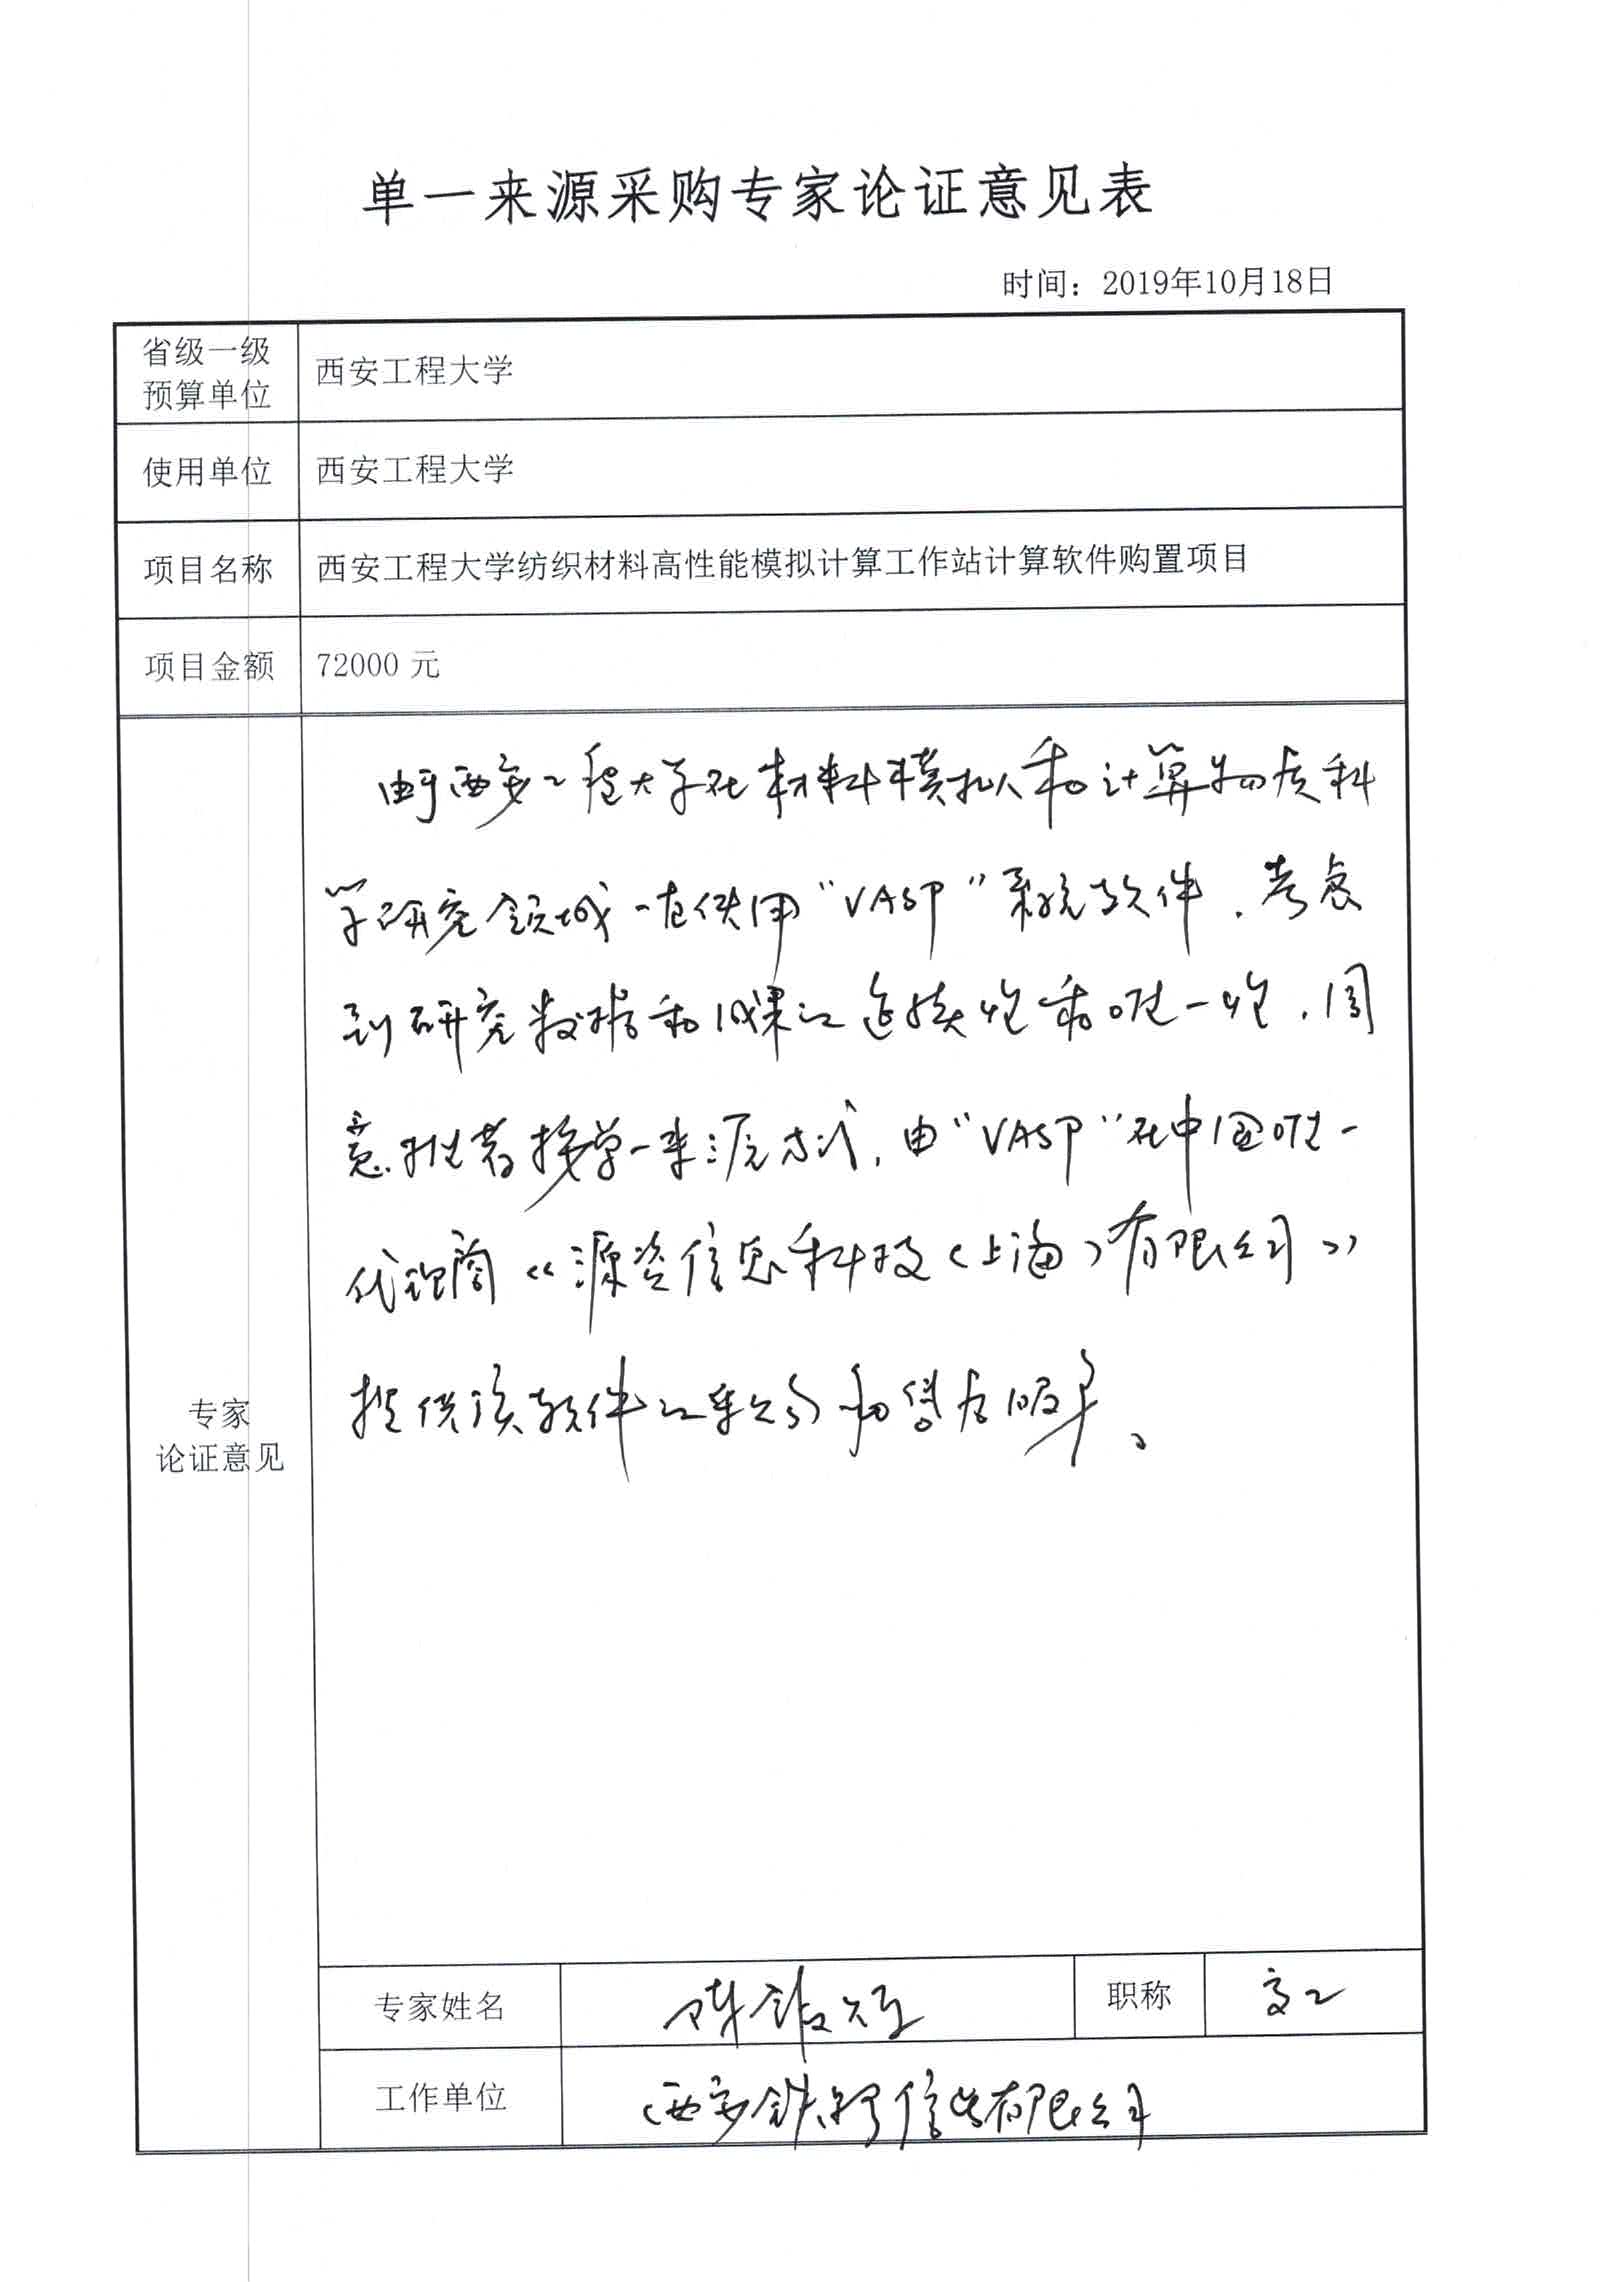 单一来源采购专家论证意见表
时间：2019年10月18日
省级一级
预算单位
西安工程大学
使用单位
西安工程大学
项目名称
西安工程大学纺织材料高性能模拟计算工作站计算软件购置项目
项目金额
72000 元
由于西安工程大学在材料模拟和计算物质科
学研究领域一直使用“VASP”系统软件，考虑
到研究数据和成果的连续性和唯一性，同
意单一来源方式，由“VASP”在中国唯一
代理商《源资信息科技（上海）有限公司》
提供该软件和售后服务。
专家
论证意见
专家姓名
陈
职称
高工
工作单位
西安有限公司